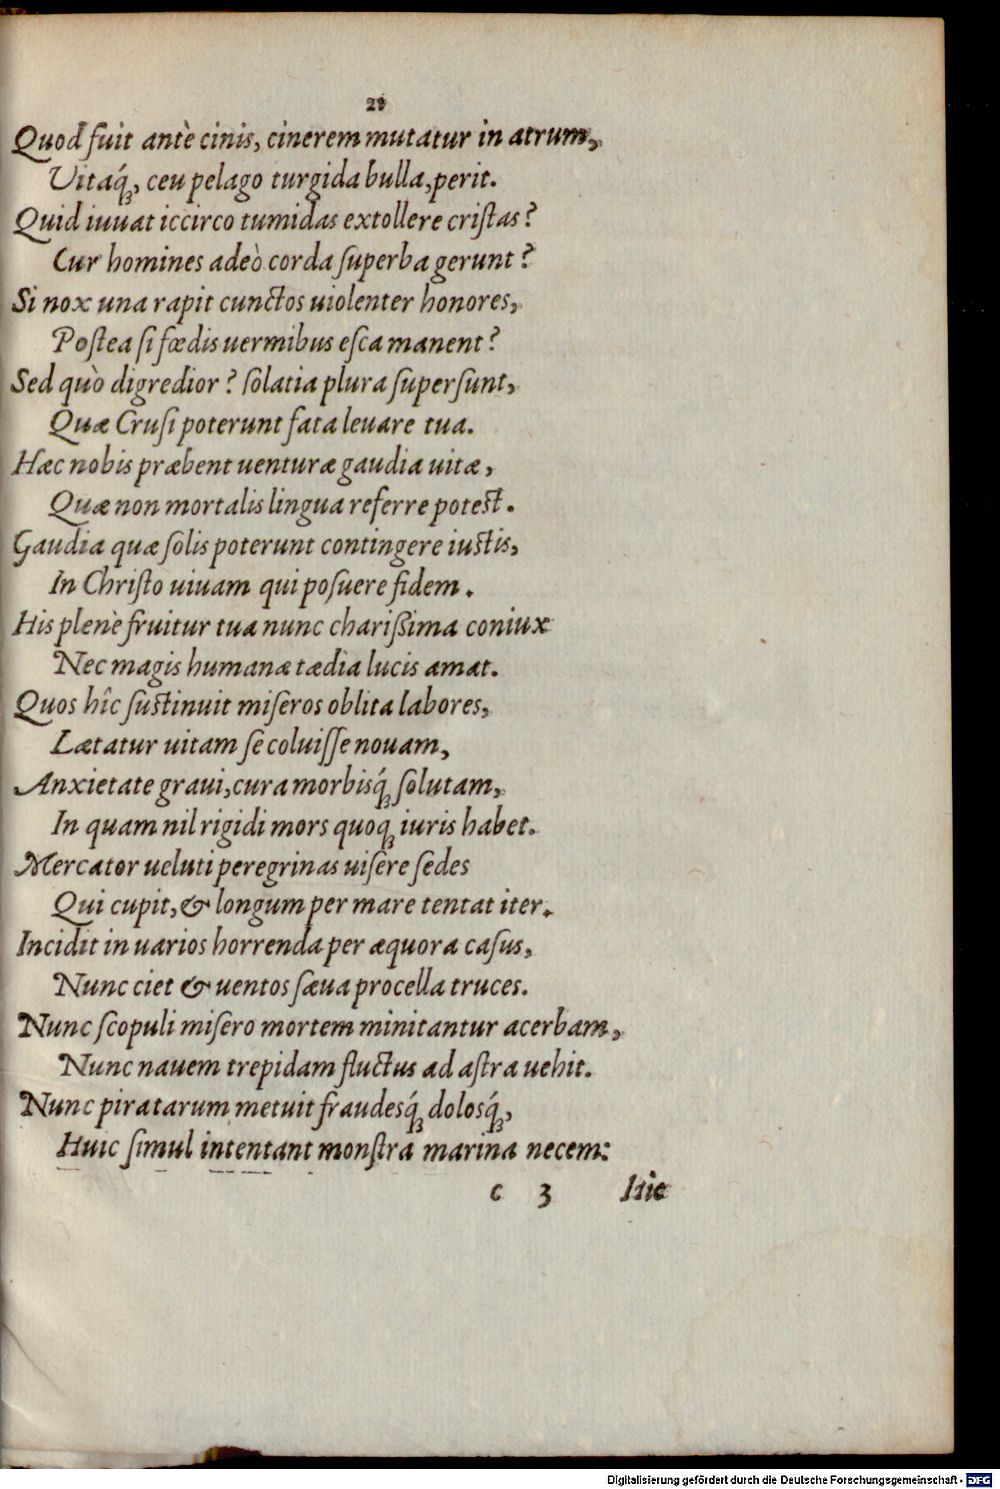 21
Quod fuit antè cinis, cinerem mutatur in atrum,
Vitaq́ꝫ, ceu pelago turgida bulla, perit.
Quid iuuat iccirco tumidas extollere criſtas?
Cur homines adeò corda ſuperba gerunt?
Si nox una rapit cunctos uiolenter honores,
Poſtea ſi fœdis uermibus eſca manent?
Sed quò digredior? ſolatia plura ſuperſunt,
Quæ Cruſi poterunt fata leuare tua.
Hæc nobis præbent uenturæ gaudia uitæ,
Quæ non mortalis lingua referre poteſt.
Gaudia quæ ſolis poterunt contingere iuſtis,
In Chriſto uiuam qui poſuere fidem.
His plenè fruitur tua nunc chariſſima coniux
Nec magis humanæ tædia lucis amat.
Quos hîc ſuſtinuit miſeros oblita labores,
Lætatur uitam ſe coluiſſe nouam,
Anxietate graui, cura morbisq́ꝫ ſolutam,
In quam nil rigidi mors quoqꝫ iuris habet.
Mercator ueluti peregrinas uiſere ſedes
Qui cupit, & longum per mare tentat iter.
Incidit in uarios horrenda per æquora caſus,
Nunc ciet & uentos ſæua procella truces.
Nunc ſcopuli miſero mortem minitantur acerbam,
Nunc nauem trepidam fluctus ad aſtra uehit.
Nunc piratarum metuit fraudesq́ꝫ dolosq́ꝫ,
Huic ſimul intentant monſtra marina necem:
c 3 Hic
Digitalisierung gefördert durch die Deutsche Forschungsgemeinschaft - DFG